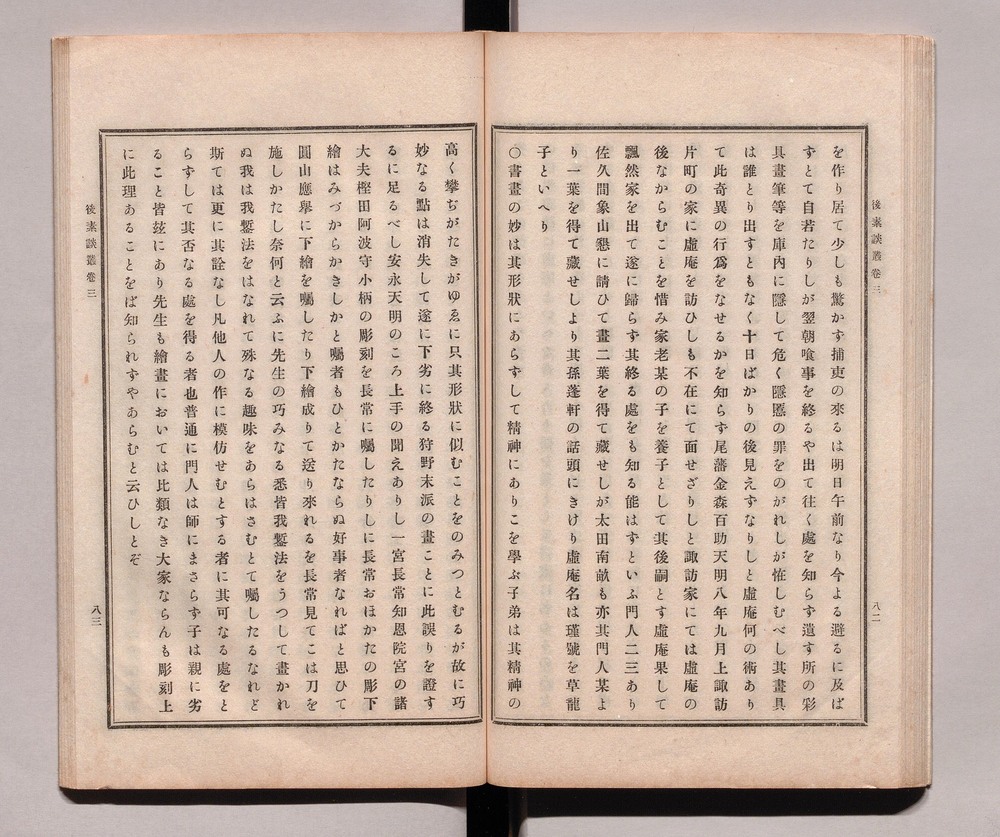 後素談叢卷三
八二
を作り居て少しも驚かす捕吏の來るは明日午前なり今よる避るに及ば
すとて自若たりしが翌朝喰事を終るや出て往く處を知らす遺す所の彩
具畫筆等を庫內に隱して危く隱匿の罪をのがれしが恠しむべし其畫具
は誰とり出すともなく十日ばかりの後見えすなりしと虛庵何の術あり
て此奇異の行爲をなせるかを知らす尾藩金森百助天明八年九月上諏訪
片町の家に虛庵を訪ひしも不在にて面せざりしと諏訪家にては虛庵の
後なからむことを惜み家老某の子を養子として其後嗣とす虛庵果して
飄然家を出て遂に歸らす其終る處をも知る能はすといふ門人二三あり
佐久間象山懇に請ひて畫二葉を得て藏せしが太田南畝も亦其門人某よ
り一葉を得て藏せしより其孫蓬軒の話頭にきけり虛庵名は瑾號を草龍
子といへり
○書畫の妙は其形狀にあらすして精神にありこを學ぶ子弟は其精神の
高く攀ぢがたきがゆゑに只其形狀に似むことをのみつとむるが故に巧
妙なる點は消失して遂に下劣に終る狩野末派の畫ことに此誤りを證す
るに足るべし安永天明のころ上手の聞えありし一宮長常知恩院宮の諸
大夫樫田阿波守小柄の彫刻を長常に囑したりしに長常おほかたの彫下
繪はみづからかきしかと囑者もひとかたならぬ好事者なればと思ひて
圓山應擧に下繪を囑したり下繪成りて送り來れるを長常見てこは刀を
施しかたし奈何と云ふに先生の巧みなる悉皆我鏨法をうつして畫かれ
ぬ我は我鏨法をはなれて殊なる趣味をあらはさむとて囑したるなれど
斯ては更に其詮なし凡他人の作に模仿せむとする者に其可なる處をと
らすして其否なる處を得る者也普通に門人は師にまさらす子は親に劣
ること皆玆にあり先生も繪畫においては比類なき大家ならんも彫刻上
に此理あることをば知られすやあらむと云ひしとぞ
後素談叢卷三
八三